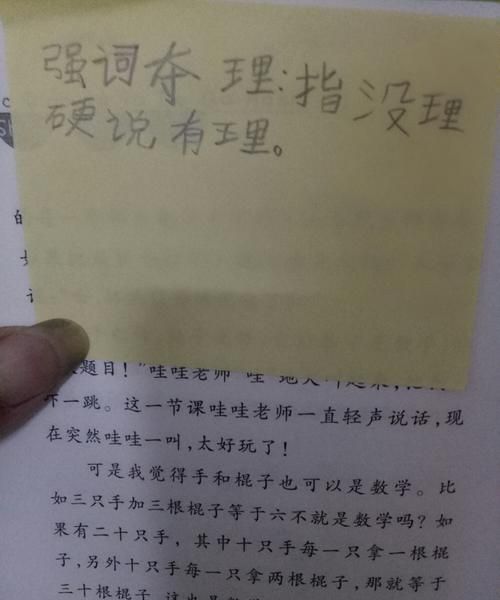 强词夺理:指没理
硬说有理。
的
题目!"哇哇老师"哇"地大叫起来,
吓一跳。这一节课哇哇老师一直轻声说话,现
在突然哇哇一叫,太好玩了!
可是我觉得手和棍子也可以是数学。比
如三只手加三根棍子等于六不就是数学吗?如
果有二十只手,其中十只手每一只拿一根棍
子,另外十只手每一只拿两根棍子,那就等于
三十根棍子,这也是数学